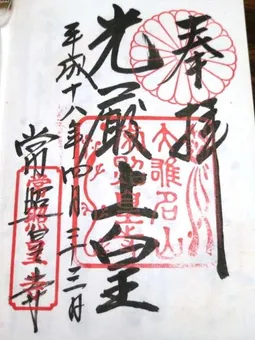 奉拝
大雄名山
常照皇寺
光厳上皇
平成十八年四月 日
常照皇寺
常照皇寺